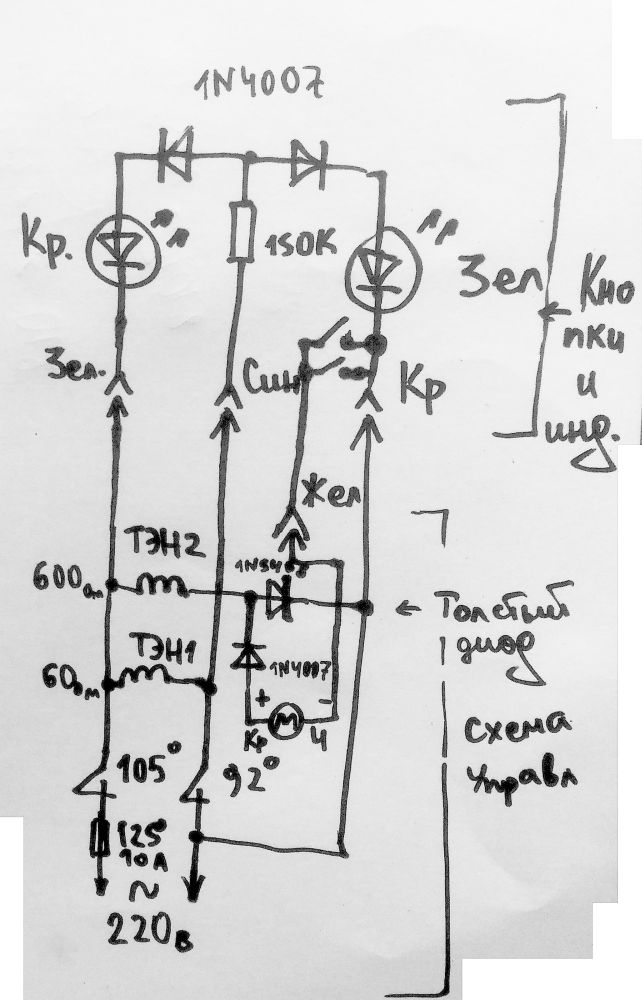 1N4007
Кр.
150К
Зел
Кно
пки
и
инд.
Зел.
Син
Кр
Жел
ТЭН2
600ом
1N5408
← Толстый
диод
ТЭН1
60ом
1N4007
+ -
Кр М Ч
схема
управл
105°
92°
125°
10А
~
220в